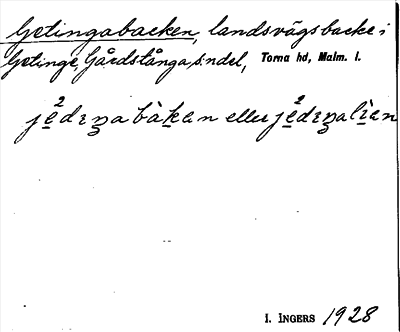 Getingabacken, landsvägsbacke i
Getinge, Gårdstånga s:ndel, Torna hd, Malm. l.
j²e̱dɪŋabàḵan eller j²e̱dɪŋalìan
I. INGERS 1928